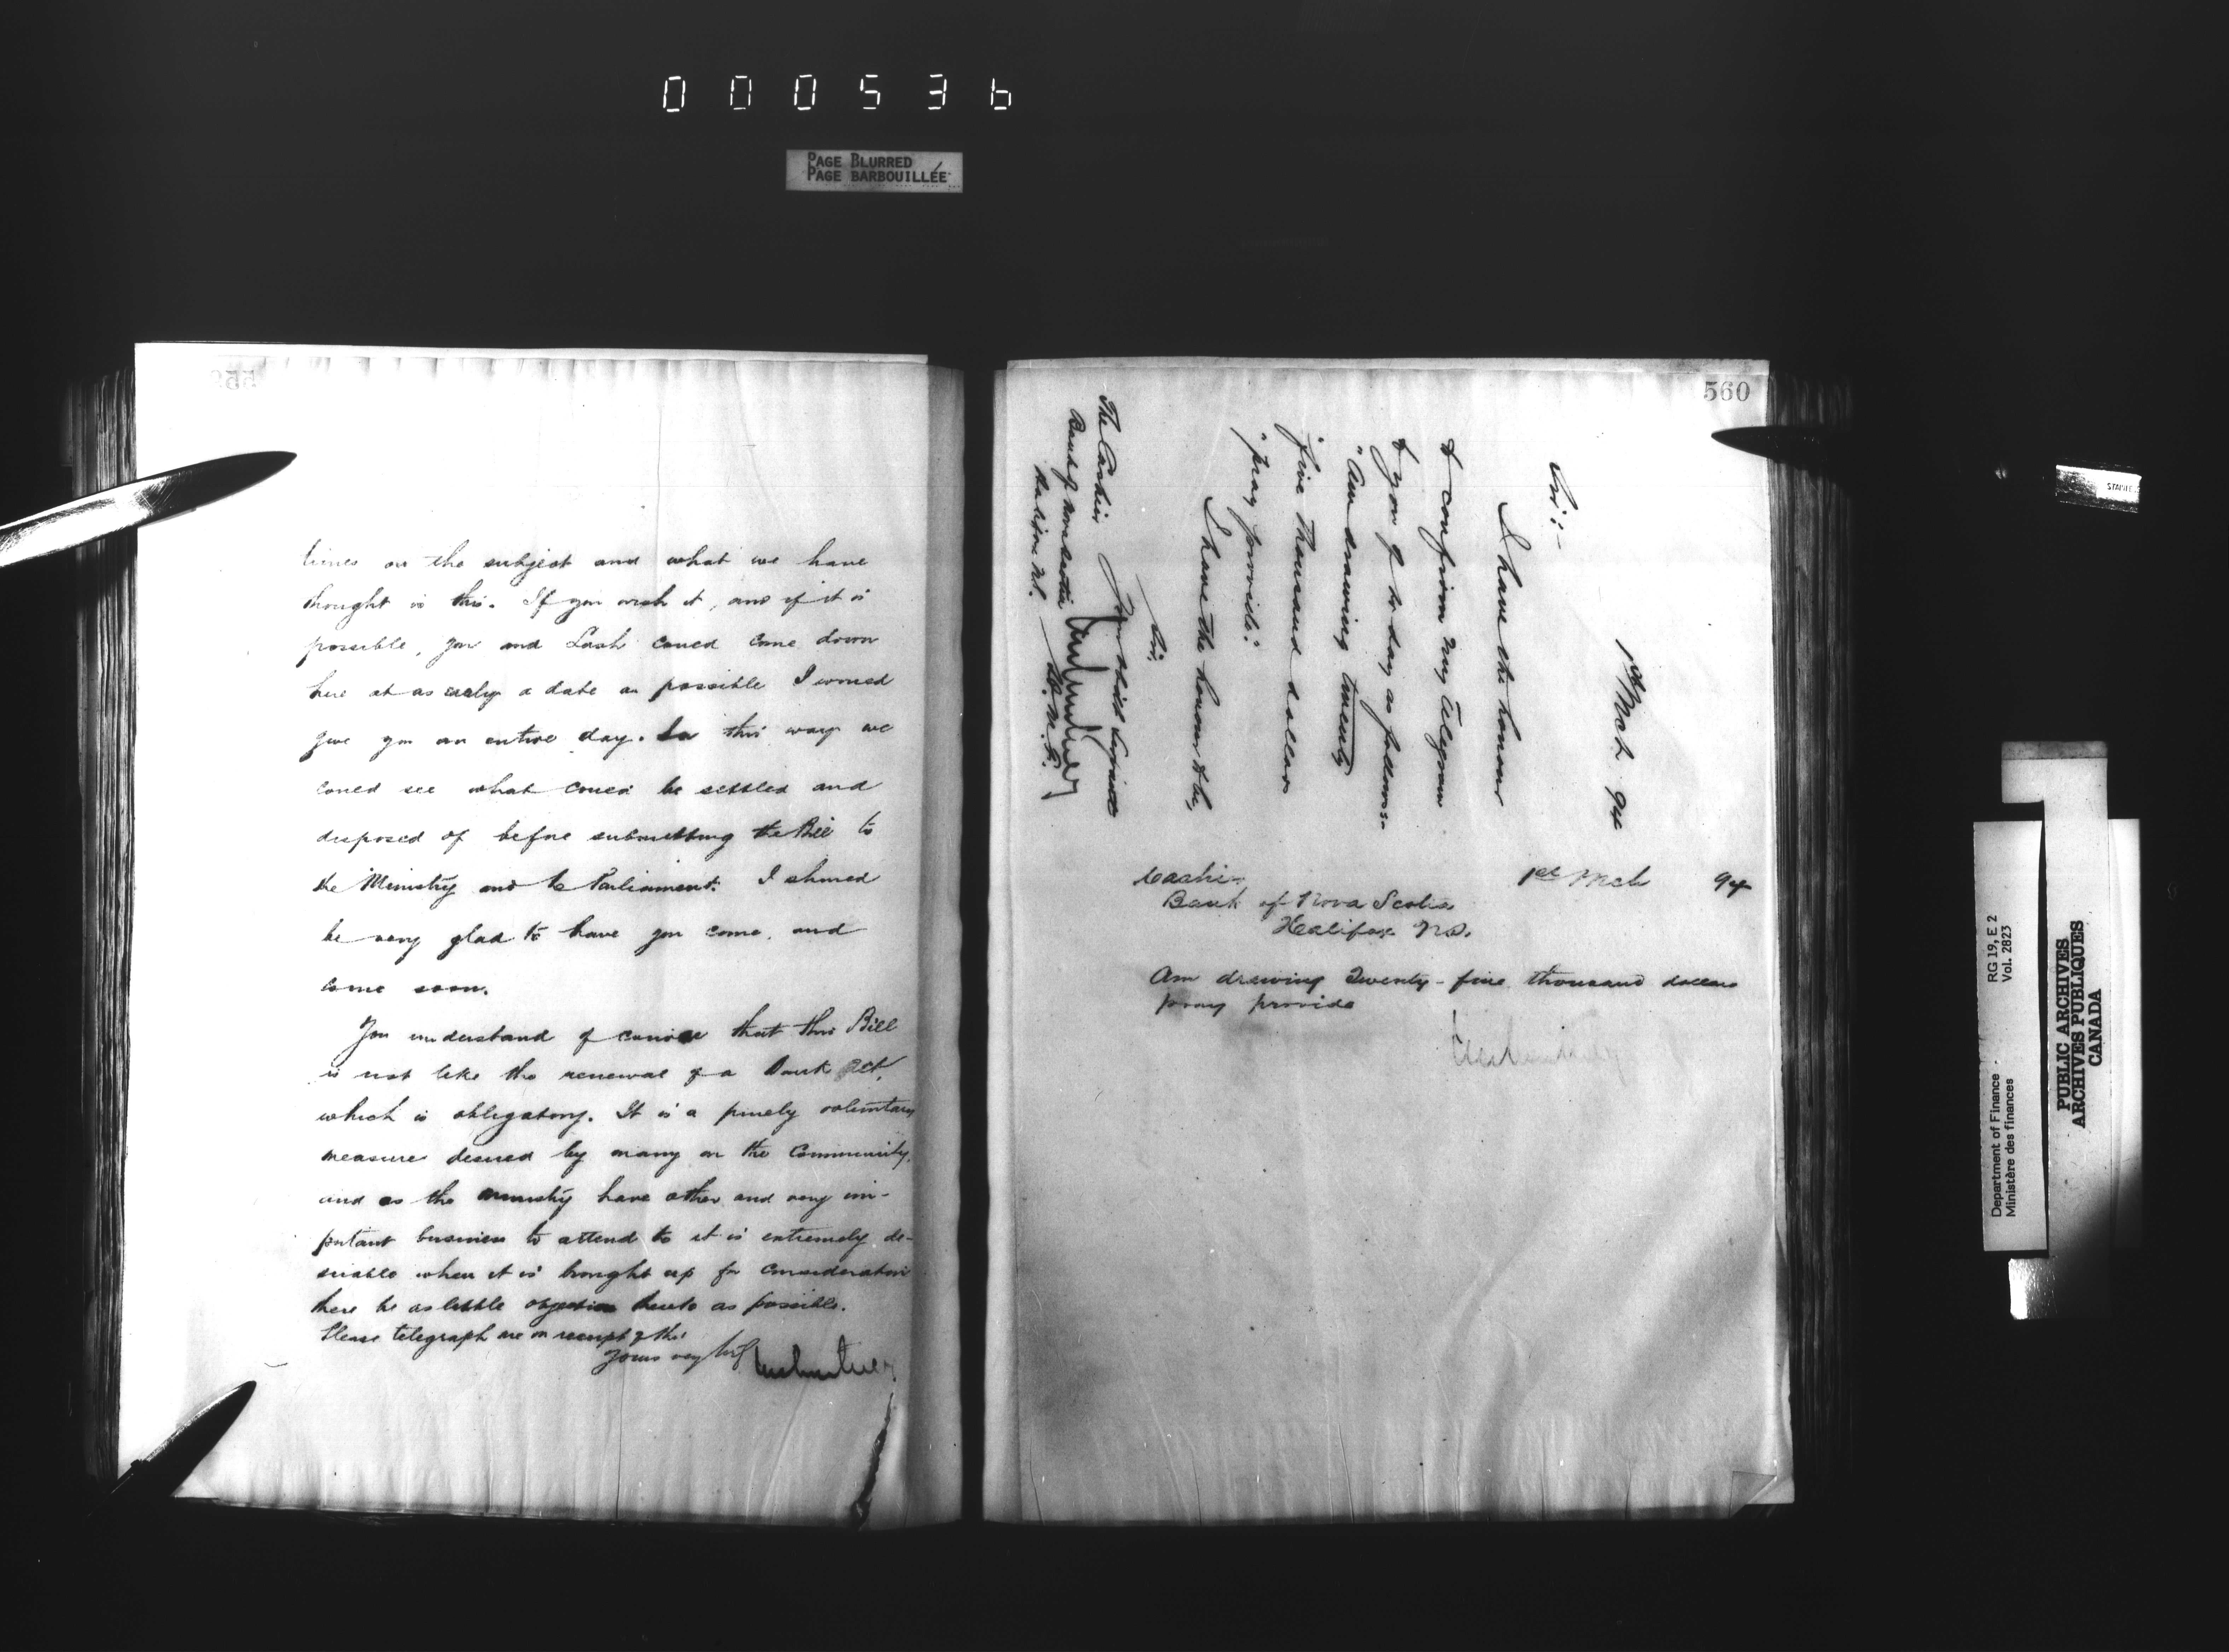 000536
PAGE BLURRED
PAGE BARBOUILLÉE
559
times on the subject and what we have
thought is this. If you wish it, and if it is
possible, you and Lash could come down
here at as early a date as possible I would
give you an entire day. In this way we
could see what could be settled and
disposed of before submitting the Bill to
the Ministry and to Parliament. I should
be very glad to have you come, and
come soon.
You understand of course that this Bill
is not like the renewal of a Bank Act,
which is obligatory. It is a purely voluntary
measure desired by many in the Community,
and as the ministry have other and very im-
portant business to attend to it is extremely de-
sirable when it is brought up for consideration
there be as little objection thereto as possible.
Please telegraph me on receipt of this
Yours very truly
560
1st Mch 94
Sir:-
I have the honour
to confirm my telegram
to you of to day as follows:-
"Am drawing twenty
"five thousand dollars
"pray provide".
I have the honour to be,
Sir,
Your obdt servant
The Cashier
Bank of Nova Scotia
Halifax N.S.
D.M.F.
1st Mch 94
Cashier
Bank of Nova Scotia
Halifax N.S.
Am drawing Twenty-five thousand dollars
pray provide
STANLE
Department of Finance
Ministère des finances
RG 19, E 2
Vol. 2823
PUBLIC ARCHIVES
ARCHIVES PUBLIQUES
CANADA